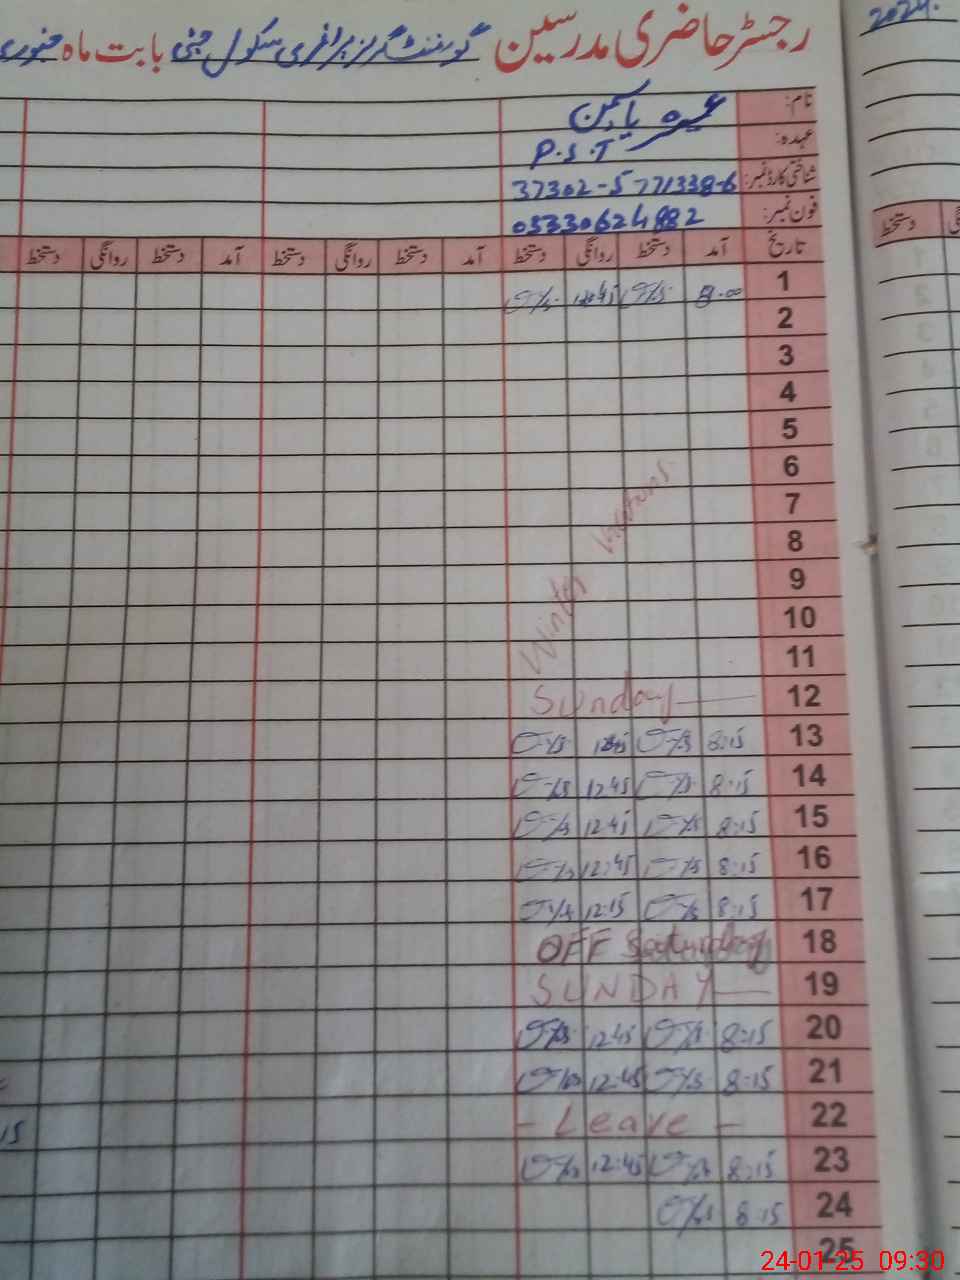 رجسٹر حاضری مدرسین گورنمنٹ گرلز پرائمری سکول بابت ماہ جنوری
2024.
نام: یاسمین
عہدہ: P.S.T
شناختی کارڈ نمبر: 37302-5771338-6
فون نمبر: 03330624882
تاریخ آمد دستخط روانگی دستخط آمد دستخط روانگی دستخط آمد دستخط روانگی دستخط
دستخط
1 8.00 12:45
2
3
4
5
6
7
8
9
10
11
Winter Vacations
12 Sunday
13 8:15 12:45
14 8:15 12:45
15 8:15 12:45
16 8:15 12:45
17 8:15 12:15
18 OFF Saturday
19 SUNDAY
20 8:15 12:45
21 8:15 12:45
22 - Leave -
23 8:15 12:45
24 8:15
25
15
24-01-25 09:30